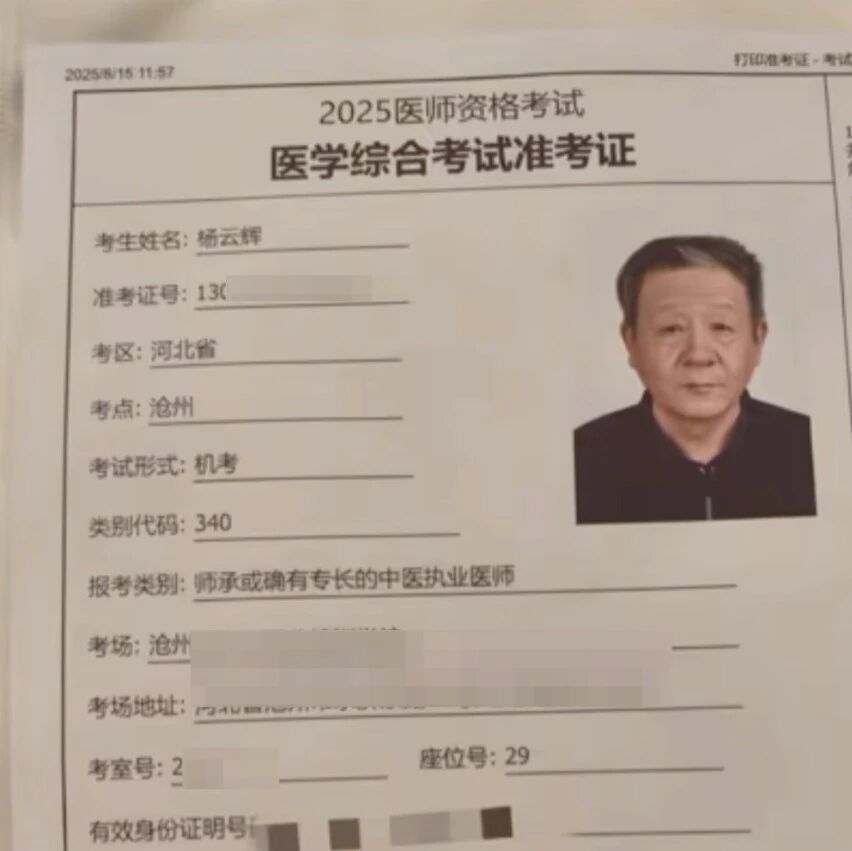 2025/8/15 11:57
打印准考证 - 考试
2025医师资格考试
医学综合考试准考证
考生姓名: 杨云辉
准考证号: 130
考区: 河北省
考点: 沧州
考试形式: 机考
类别代码: 340
报考类别: 师承或确有专长的中医执业医师
考场: 沧州
考场地址:
考室号: 2
座位号: 29
有效身份证明号